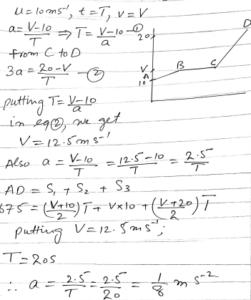 u=10ms⁻¹, t=T, v=V
a=V-10/T ⇒ T=V-10/a —①
from C to D
3a=20-V/T —②
putting T=V-10/a
in eq②, we get
V=12.5ms⁻¹
Also a=V-10/T=12.5-10/T=2.5/T
AD=S₁+S₂+S₃
675=(V+10/2)T+V×10+(V+20/2)T
putting V=12.5ms⁻¹;
T=20s
∴ a=2.5/T=2.5/20=1/8 ms⁻²
20
V
A
10
B
C
D